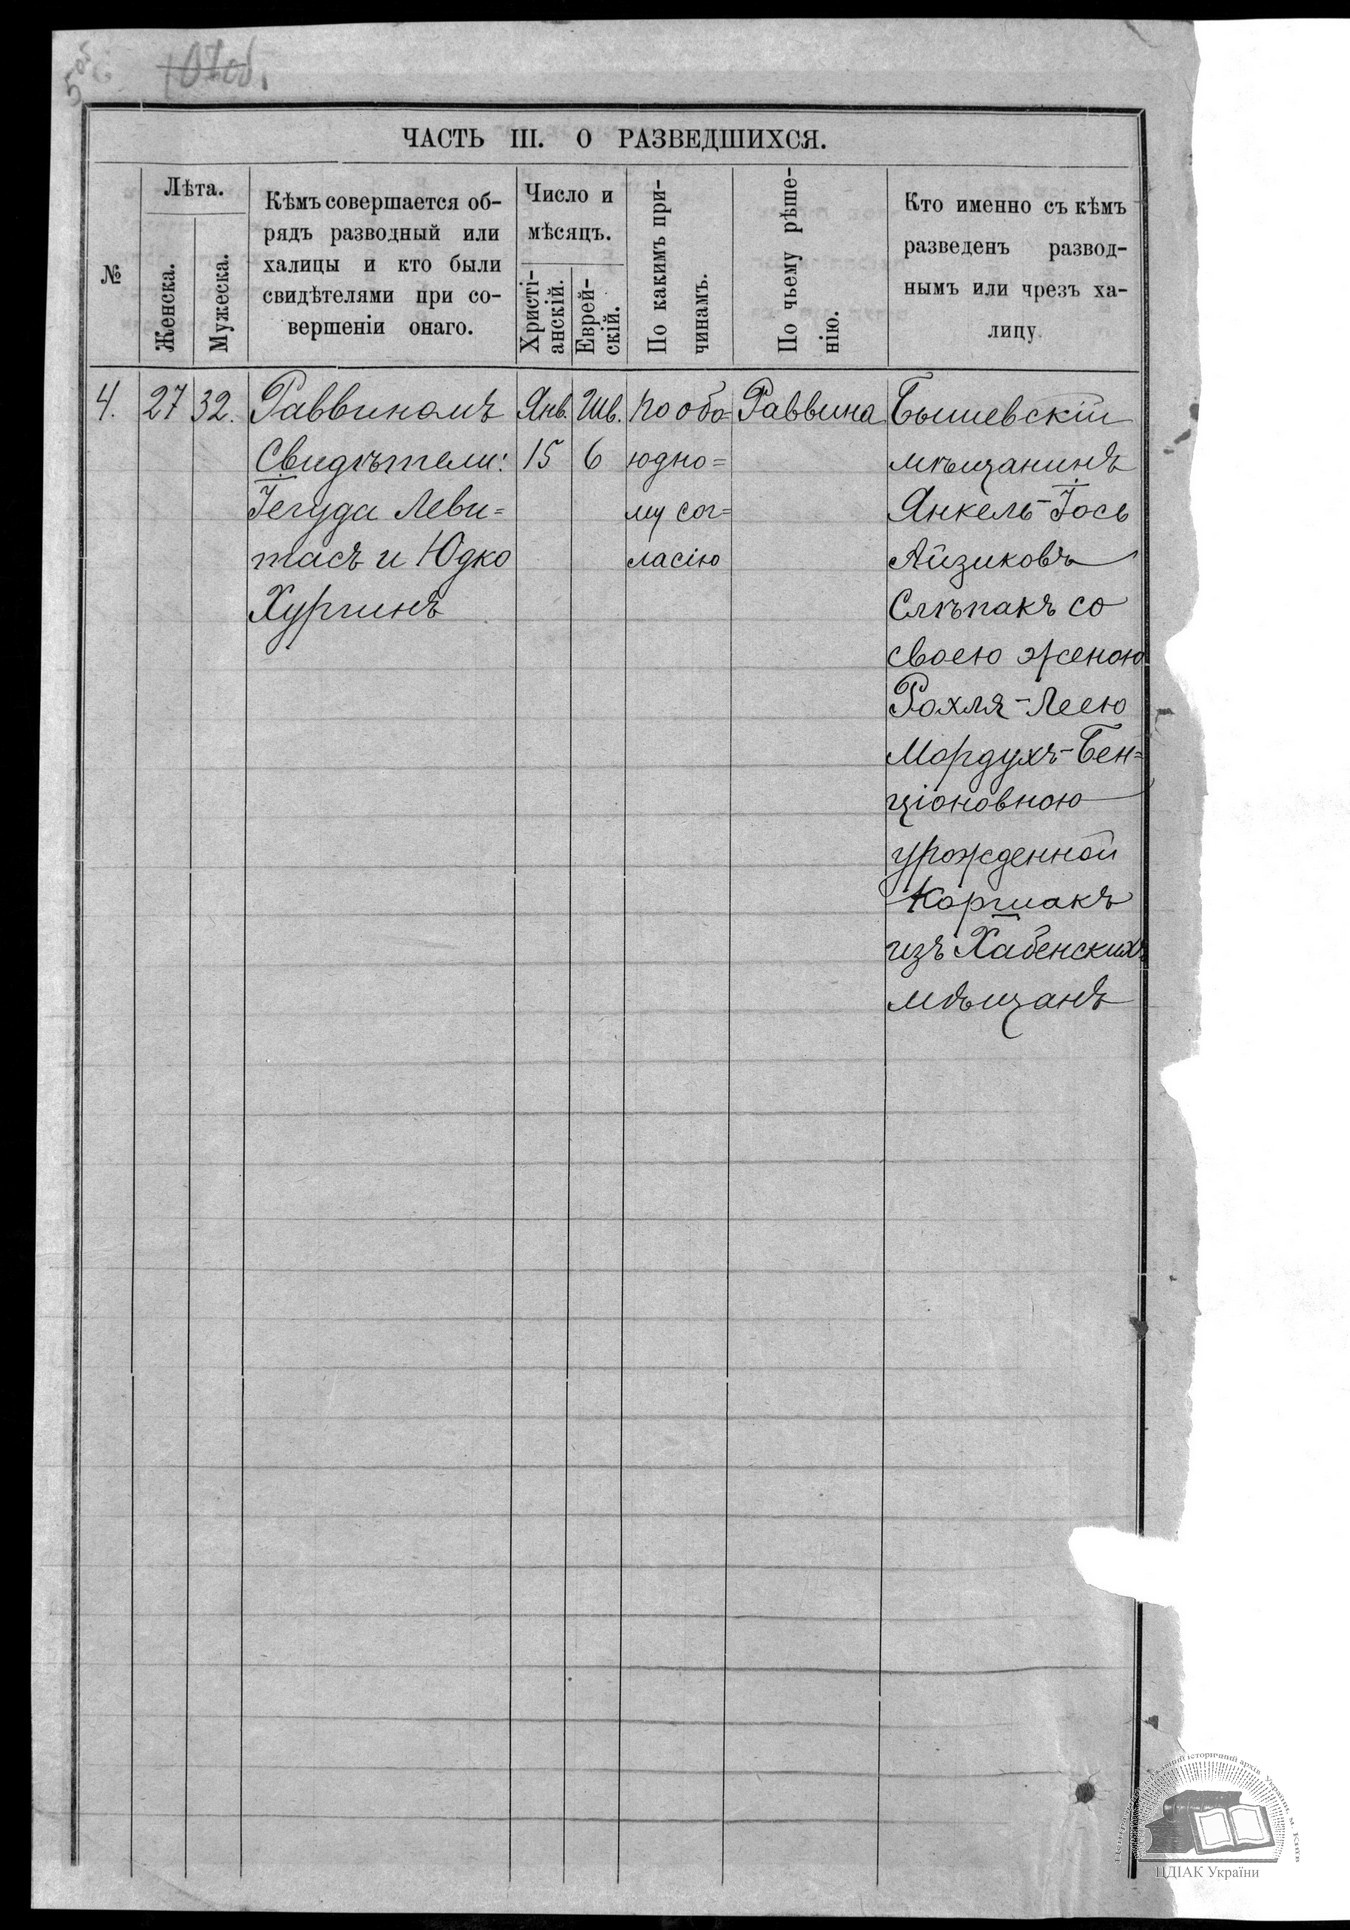 5об
107об.
ЧАСТЬ III. О РАЗВЕДШИХСЯ.
№
Лѣта.
Женска.
Мужеска.
Кѣмъ совершается об-
рядъ разводный или
халицы и кто были
свидѣтелями при со-
вершеніи онаго.
Число и
мѣсяцъ.
Христі-
анскій.
Еврей-
скій.
По какимъ при-
чинамъ.
По чьему рѣше-
нію.
Кто именно съ кѣмъ
разведенъ развод-
нымъ или чрезъ ха-
лицу.
4.
27
32.
Раввиномъ
Свидѣтели:
Іегуда Леви=
тасъ и Юдко
Хургинъ
Янв.
15
Шв.
6
По обо=
юдно=
му сог=
ласію
Раввина
Бышевскій
мѣщанинъ
Янкель-Іось
Айзиковъ
Слѣпакъ со
своею женою
Рохля-Леею
Мордухъ-Бен=
ціоновною
урожденной
Коршакъ
изъ Хабенскихъ
мѣщанъ
ЦДІАК України